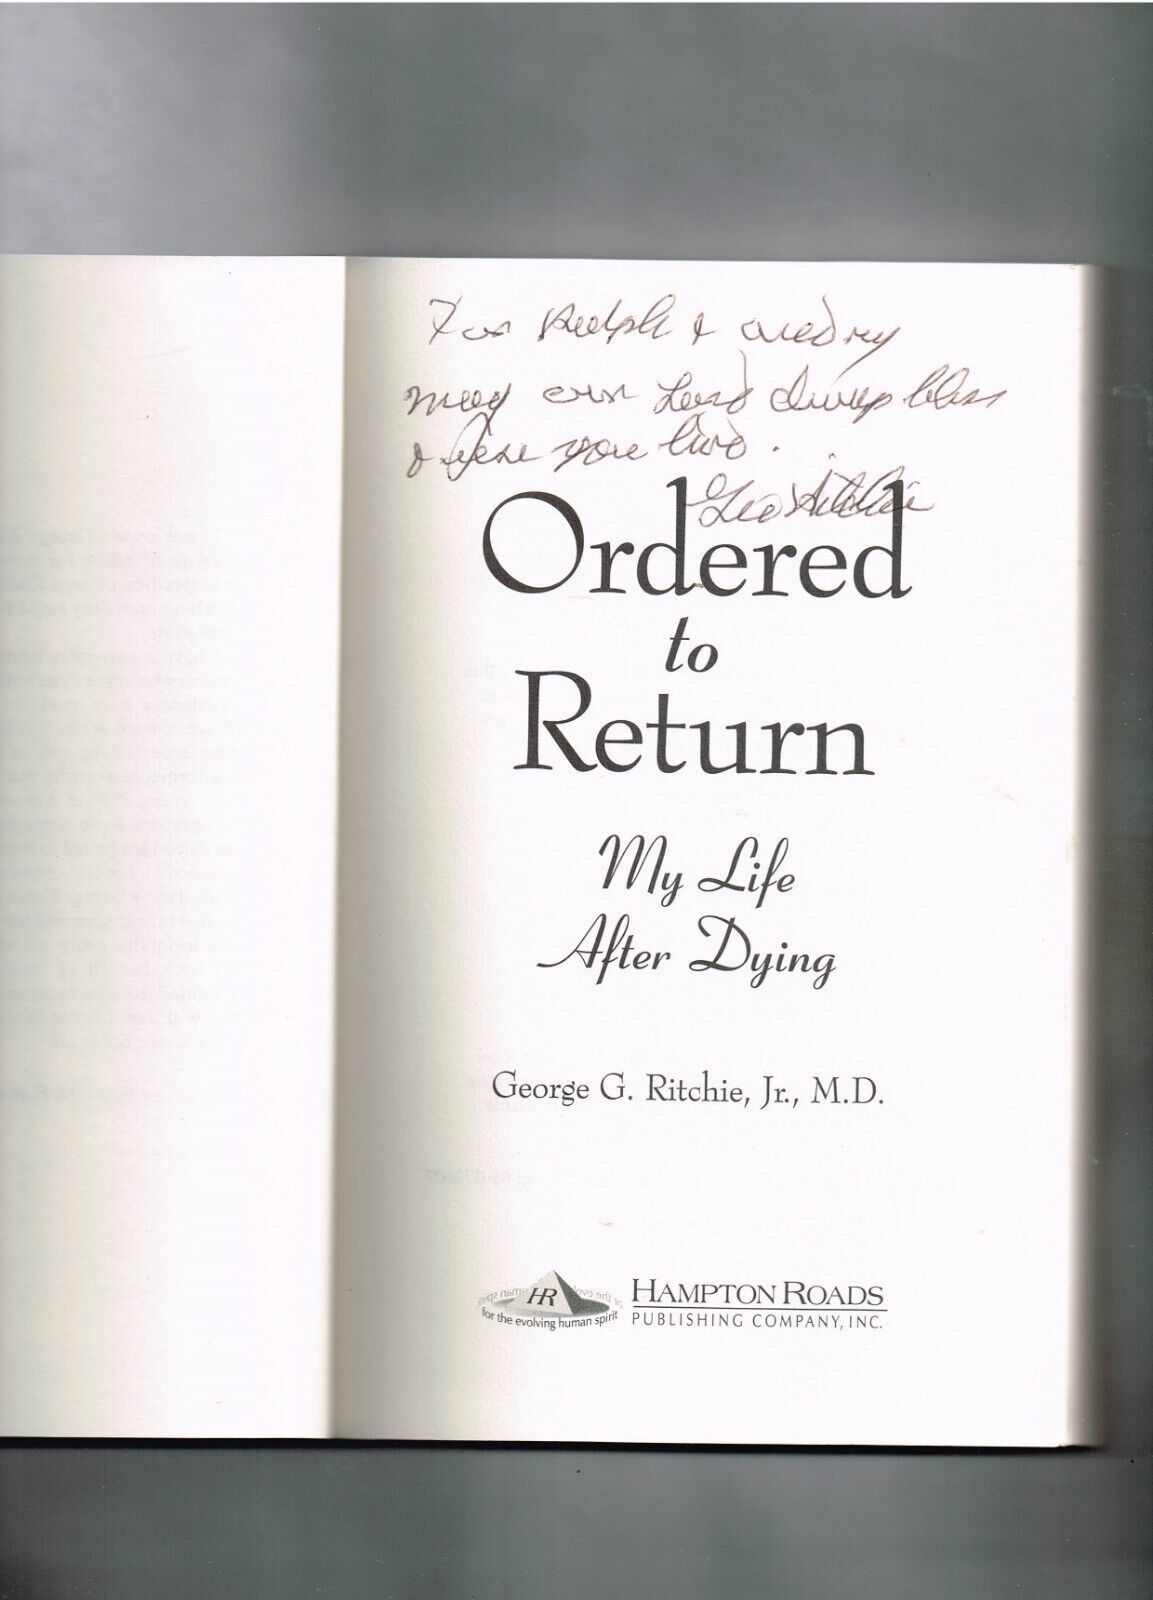 For Ralph & Audrey
may our Lord always bless
& keep you two.
Geo Ritchie
Ordered
to
Return
My Life
After Dying
George G. Ritchie, Jr., M.D.
HR
for the evolving human spirit
HAMPTON ROADS
PUBLISHING COMPANY, INC.